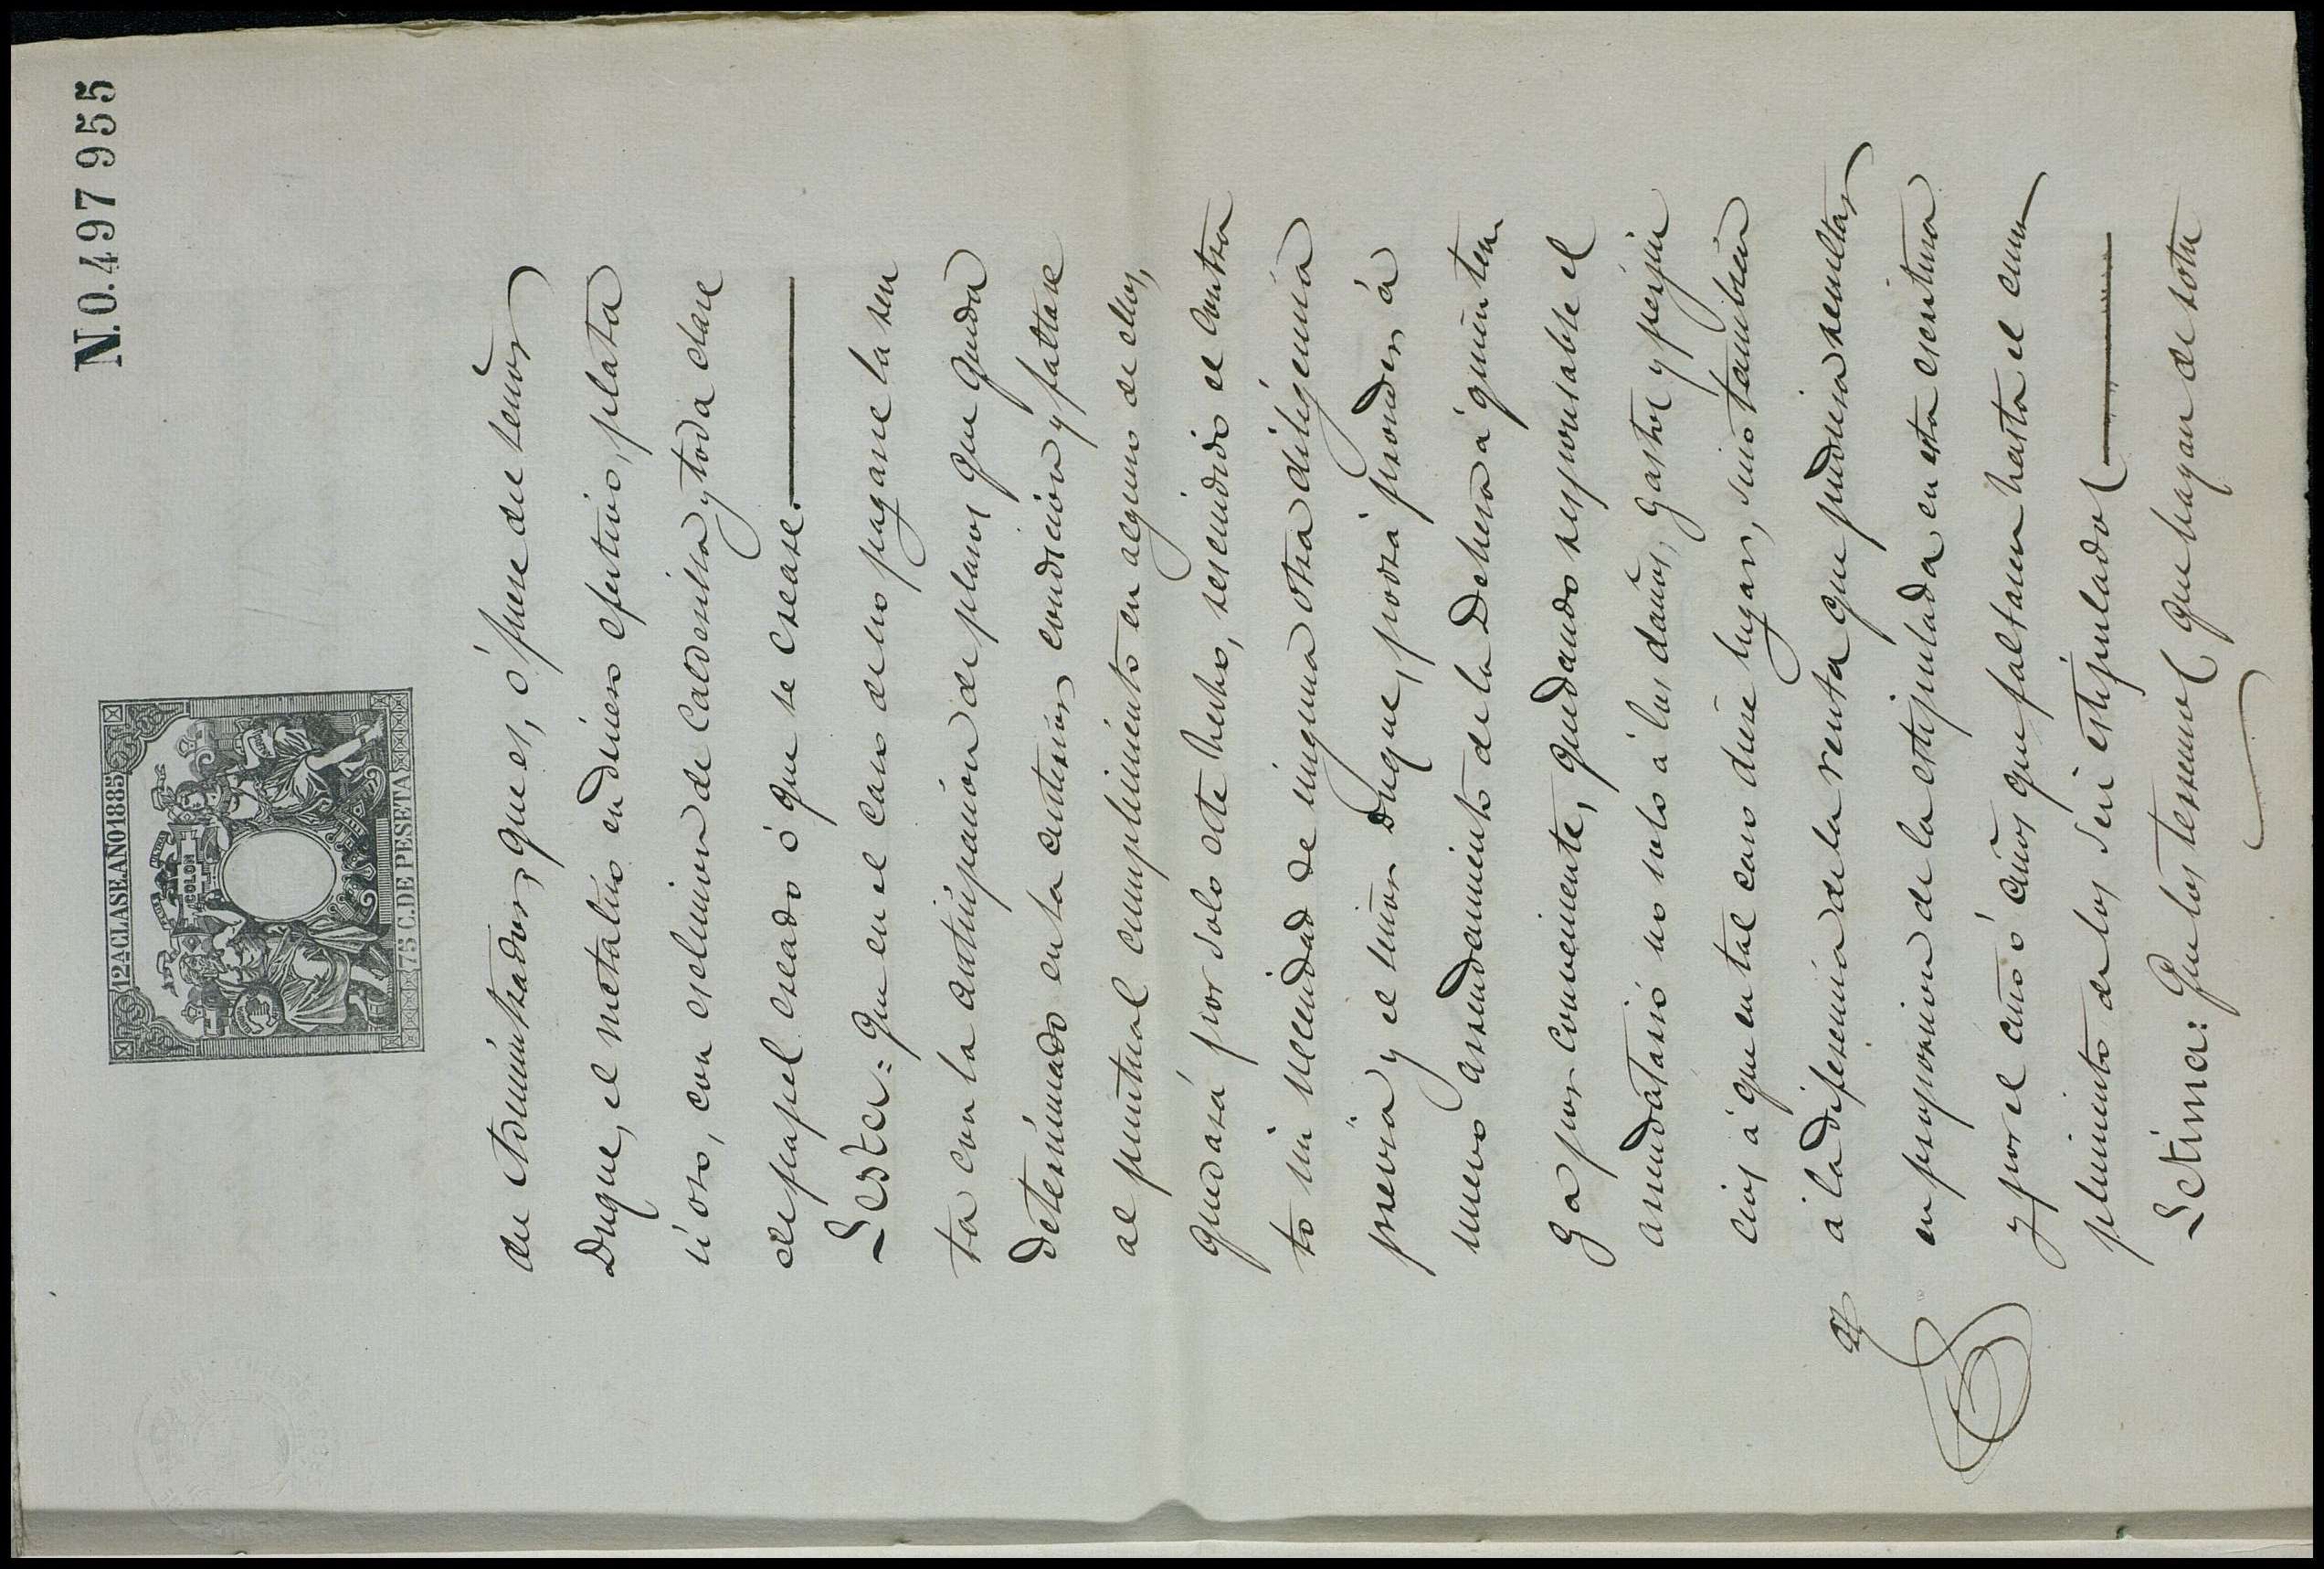 N.0.497955
12A CLASE.AÑO 1885
COLON
75 C. DE PESETA
du Administrador, que es, ó fuere de señor
Duque, el metalico en dinero efectivo, plata
ú oro, con esclusion de Calderilla y toda clase
de papel creado ó que se crease.
Sesta: Que en el caso de no pagarse la ren
ta con la anticipacion de plazos que queda
determinado en la anterior condicion y faltare
al puntual cumplimiento en alguno de ellos,
quedará por solo este hecho, rescindido el contra
to sin necesidad de ninguna otra diligencia
previa y el señor Duque, podrá proceder á
nuevo arrendamiento de la Dehesa á quien ten
ga por conveniente, quedando responsable el
arrendatario no solo á los daños, gastos y perjui
cios á que en tal caso diese lugar, sino tambien
á la diferencia de la renta que pudiera resultar
en proporcion de la estipulada en esta escritura
y por el año ó años que faltasen hasta el cum
plimiento de los seis estipulados
Setima: Que los terrenos que hayan de rotu